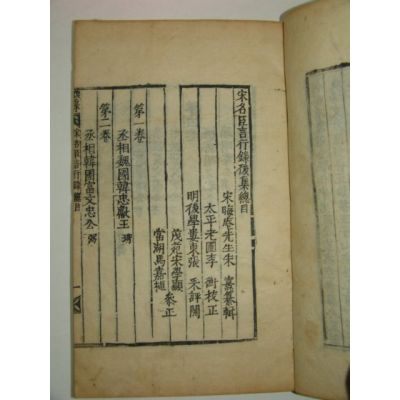 宋名臣言行錄後集總目
宋晦庵先生朱 熹纂輯
太平老圃李 衡校正
明後學婁東張 采評閱
茂苑宋學顯
當湖馬嘉植 參正
第一卷
丞相魏國韓忠獻王 琦
第二卷
丞相韓國富文忠公 弼
宋名臣言行錄 總目 一